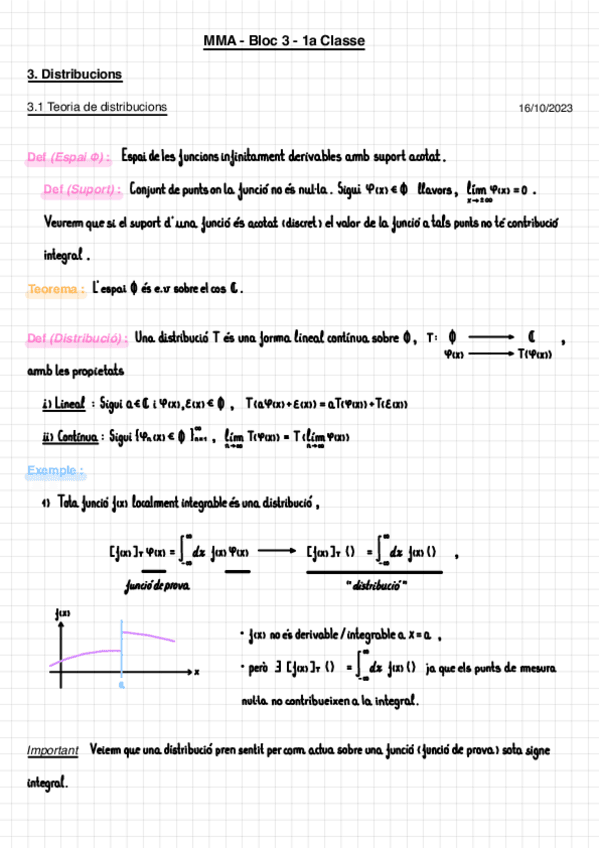 MMA - Bloc 3 - 1a Classe
3. Distribucions
3.1 Teoria de distribucions 16/10/2023
Def (Espai Φ): Espai de les funcions infinitament derivables amb suport acotat.
Def (Suport): Conjunt de punts on la funció no és nul·la. Sigui φ(x) ∈ Φ llavors, lim x→±∞ φ(x) = 0.
Veurem que si el suport d'una funció és acotat (discret) el valor de la funció a tals punts no té contribució
integral.
Teorema: L'espai Φ és e.v sobre el cos ℂ.
Def (Distribució): Una distribució T és una forma lineal contínua sobre Φ, T: Φ ⟶ ℂ ,
φ(x) ⟶ T(φ(x))
amb les propietats
i) Lineal : Sigui a ∈ ℂ i φ(x), ε(x) ∈ Φ , T(aφ(x) + ε(x)) = aT(φ(x)) + T(ε(x))
ii) Contínua : Sigui {φₙ(x) ∈ Φ}ₙ₌₁^∞ , lim n→∞ T(φ(x)) = T(lim n→∞ φ(x))
Exemple:
1) Tota funció f(x) localment integrable és una distribució,
[f(x)]_T φ(x) = ∫_{-∞}^{∞} dx f(x) φ(x) ⟶ [f(x)]_T () = ∫_{-∞}^{∞} dx f(x) () ,
funció de prova "distribució"
f(x)
x
a
· f(x) no és derivable / integrable a x = a ,
· però ∃ [f(x)]_T () = ∫_{-∞}^{∞} dx f(x) () ja que els punts de mesura
nul·la no contribueixen a la integral.
Important Veiem que una distribució pren sentit per com actua sobre una funció (funció de prova) sota signe
integral.